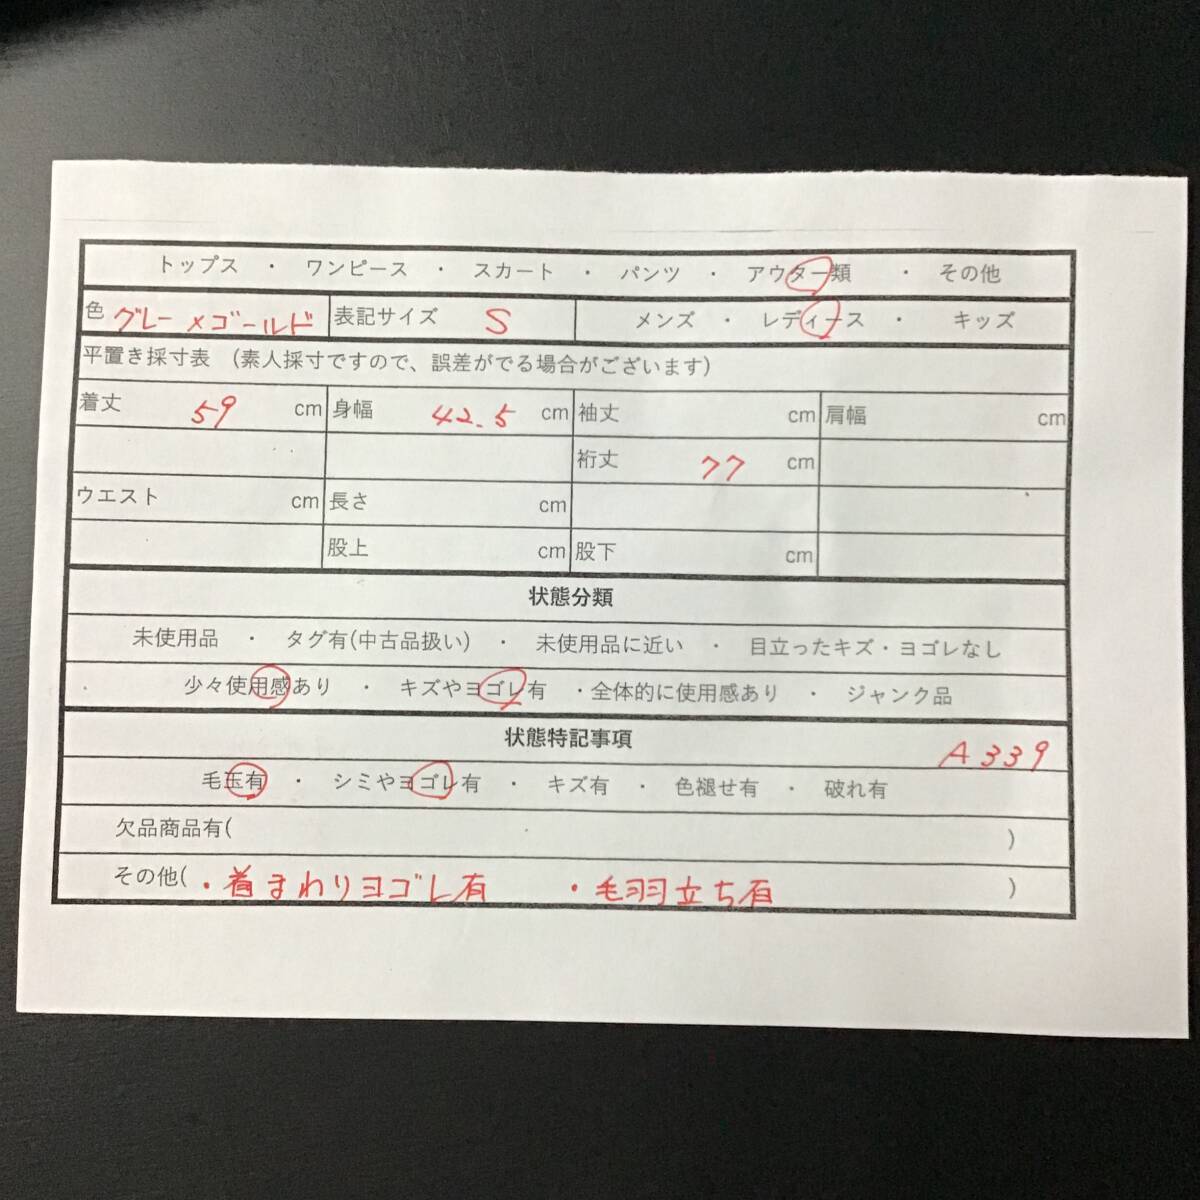 トップス ・ ワンピース ・ スカート ・ パンツ ・ アウター類 ・ その他
色 グレー×ゴールド 表記サイズ S メンズ ・ レディース ・ キッズ
平置き採寸表 (素人採寸ですので、誤差がでる場合がございます)
着丈 59 cm 身幅 42.5 cm 袖丈 cm 肩幅 cm
裄丈 77 cm
ウエスト cm 長さ cm
股上 cm 股下 cm
状態分類
未使用品 ・ タグ有(中古品扱い) ・ 未使用品に近い ・ 目立ったキズ・ヨゴレなし
少々使用感あり ・ キズやヨゴレ有 ・全体的に使用感あり ・ ジャンク品
状態特記事項 A339
毛玉有 ・ シミやヨゴレ有 ・ キズ有 ・ 色褪せ有 ・ 破れ有
欠品商品有( )
その他( ・首まわりヨゴレ有 ・毛羽立ち有 )